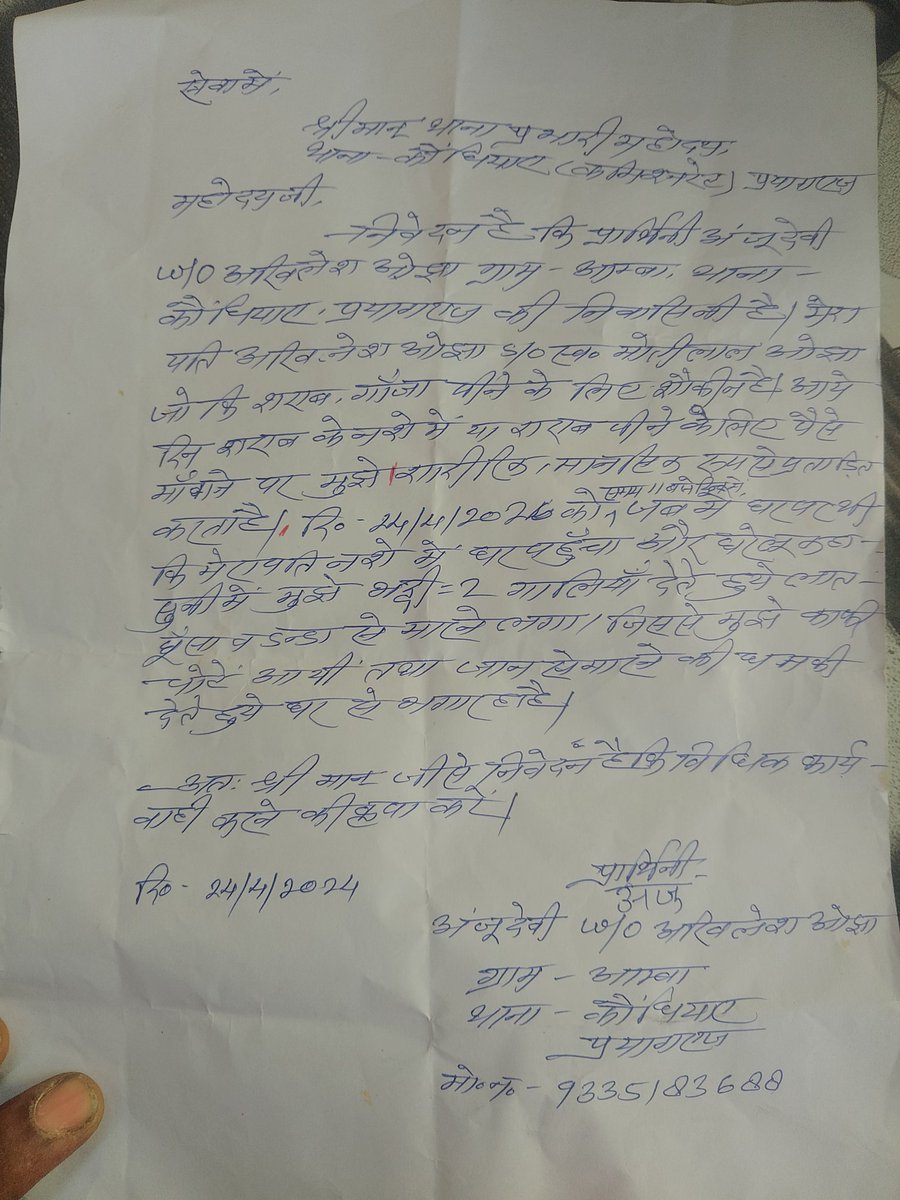 सेवा में,
श्रीमान् थाना प्रभारी महोदय,
थाना - कौंधियारा (कमिश्नरेट) प्रयागराज
महोदय जी,
निवेदन है कि प्रार्थिनी अंजू देवी
w/o अखिलेश ओझा ग्राम - आम्बा, थाना -
कौंधियारा, प्रयागराज की निवासिनी है। मेरा
पति अखिलेश ओझा s/o स्व० मोतीलाल ओझा
जो कि शराब, गाँजा पीने के लिए शौकीन है। आये
दिन शराब के नशे में या शराब पीने के लिए पैसे
माँगने पर मुझे शारीरिक, मानसिक रूप से प्रताड़ित
करता है। दि० - 24/4/2024 को, समय 11 बजे जब मैं घर पर थी
कि मेरा पति नशे में घर पहुँचा और घरेलू कहा-
सुनी में मुझे भद्दी=2 गालियाँ देते हुये लात-
घूँसा व डन्डा से मारने लगा। जिससे मुझे काफी
चोटें आयीं तथा जान से मारने की धमकी
देते हुये घर से भगा रहा है।
- अतः श्रीमान जी से निवेदन है कि विधिक कार्य-
वाही करने की कृपा करें।
दि० - 24/4/2024
प्रार्थिनी -
अंजू
अंजू देवी w/o अखिलेश ओझा
ग्राम - आम्बा
थाना - कौंधियारा
प्रयागराज
मो०नं० - 9335183688